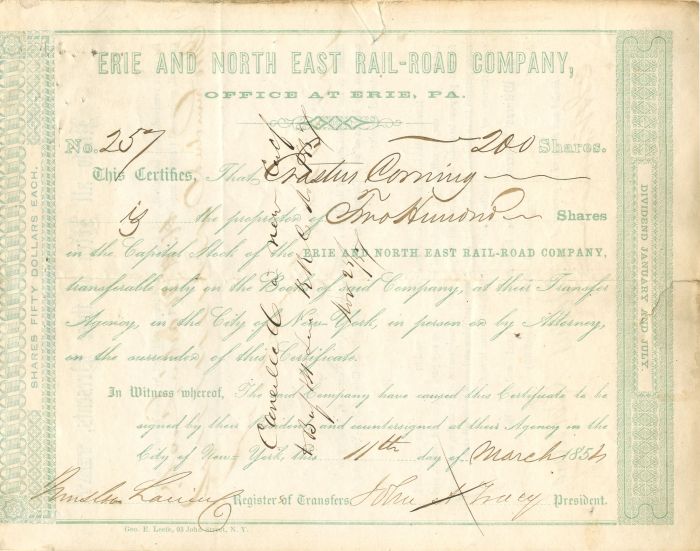 ERIE AND NORTH EAST RAIL-ROAD COMPANY,
OFFICE AT ERIE, PA.
No. 257 200 Shares.
This Certifies, That Erastus Corning
is the proprietor of Two Hundred Shares
in the Capital Stock of the ERIE AND NORTH EAST RAIL-ROAD COMPANY,
transferable only on the Books of said Company, at their Transfer
Agency, in the City of New-York, in person or by Attorney,
on the surrender of this Certificate.
In Witness whereof, The said Company have caused this Certificate to be
signed by their President and countersigned at their Agency in the
City of New-York, this 11th day of March 1854
Register of Transfers John A Tracy President.
Geo. E. Leefe, 93 John street, N. Y.
SHARES FIFTY DOLLARS EACH.
DIVIDEND JANUARY AND JULY.
Cancelled & new